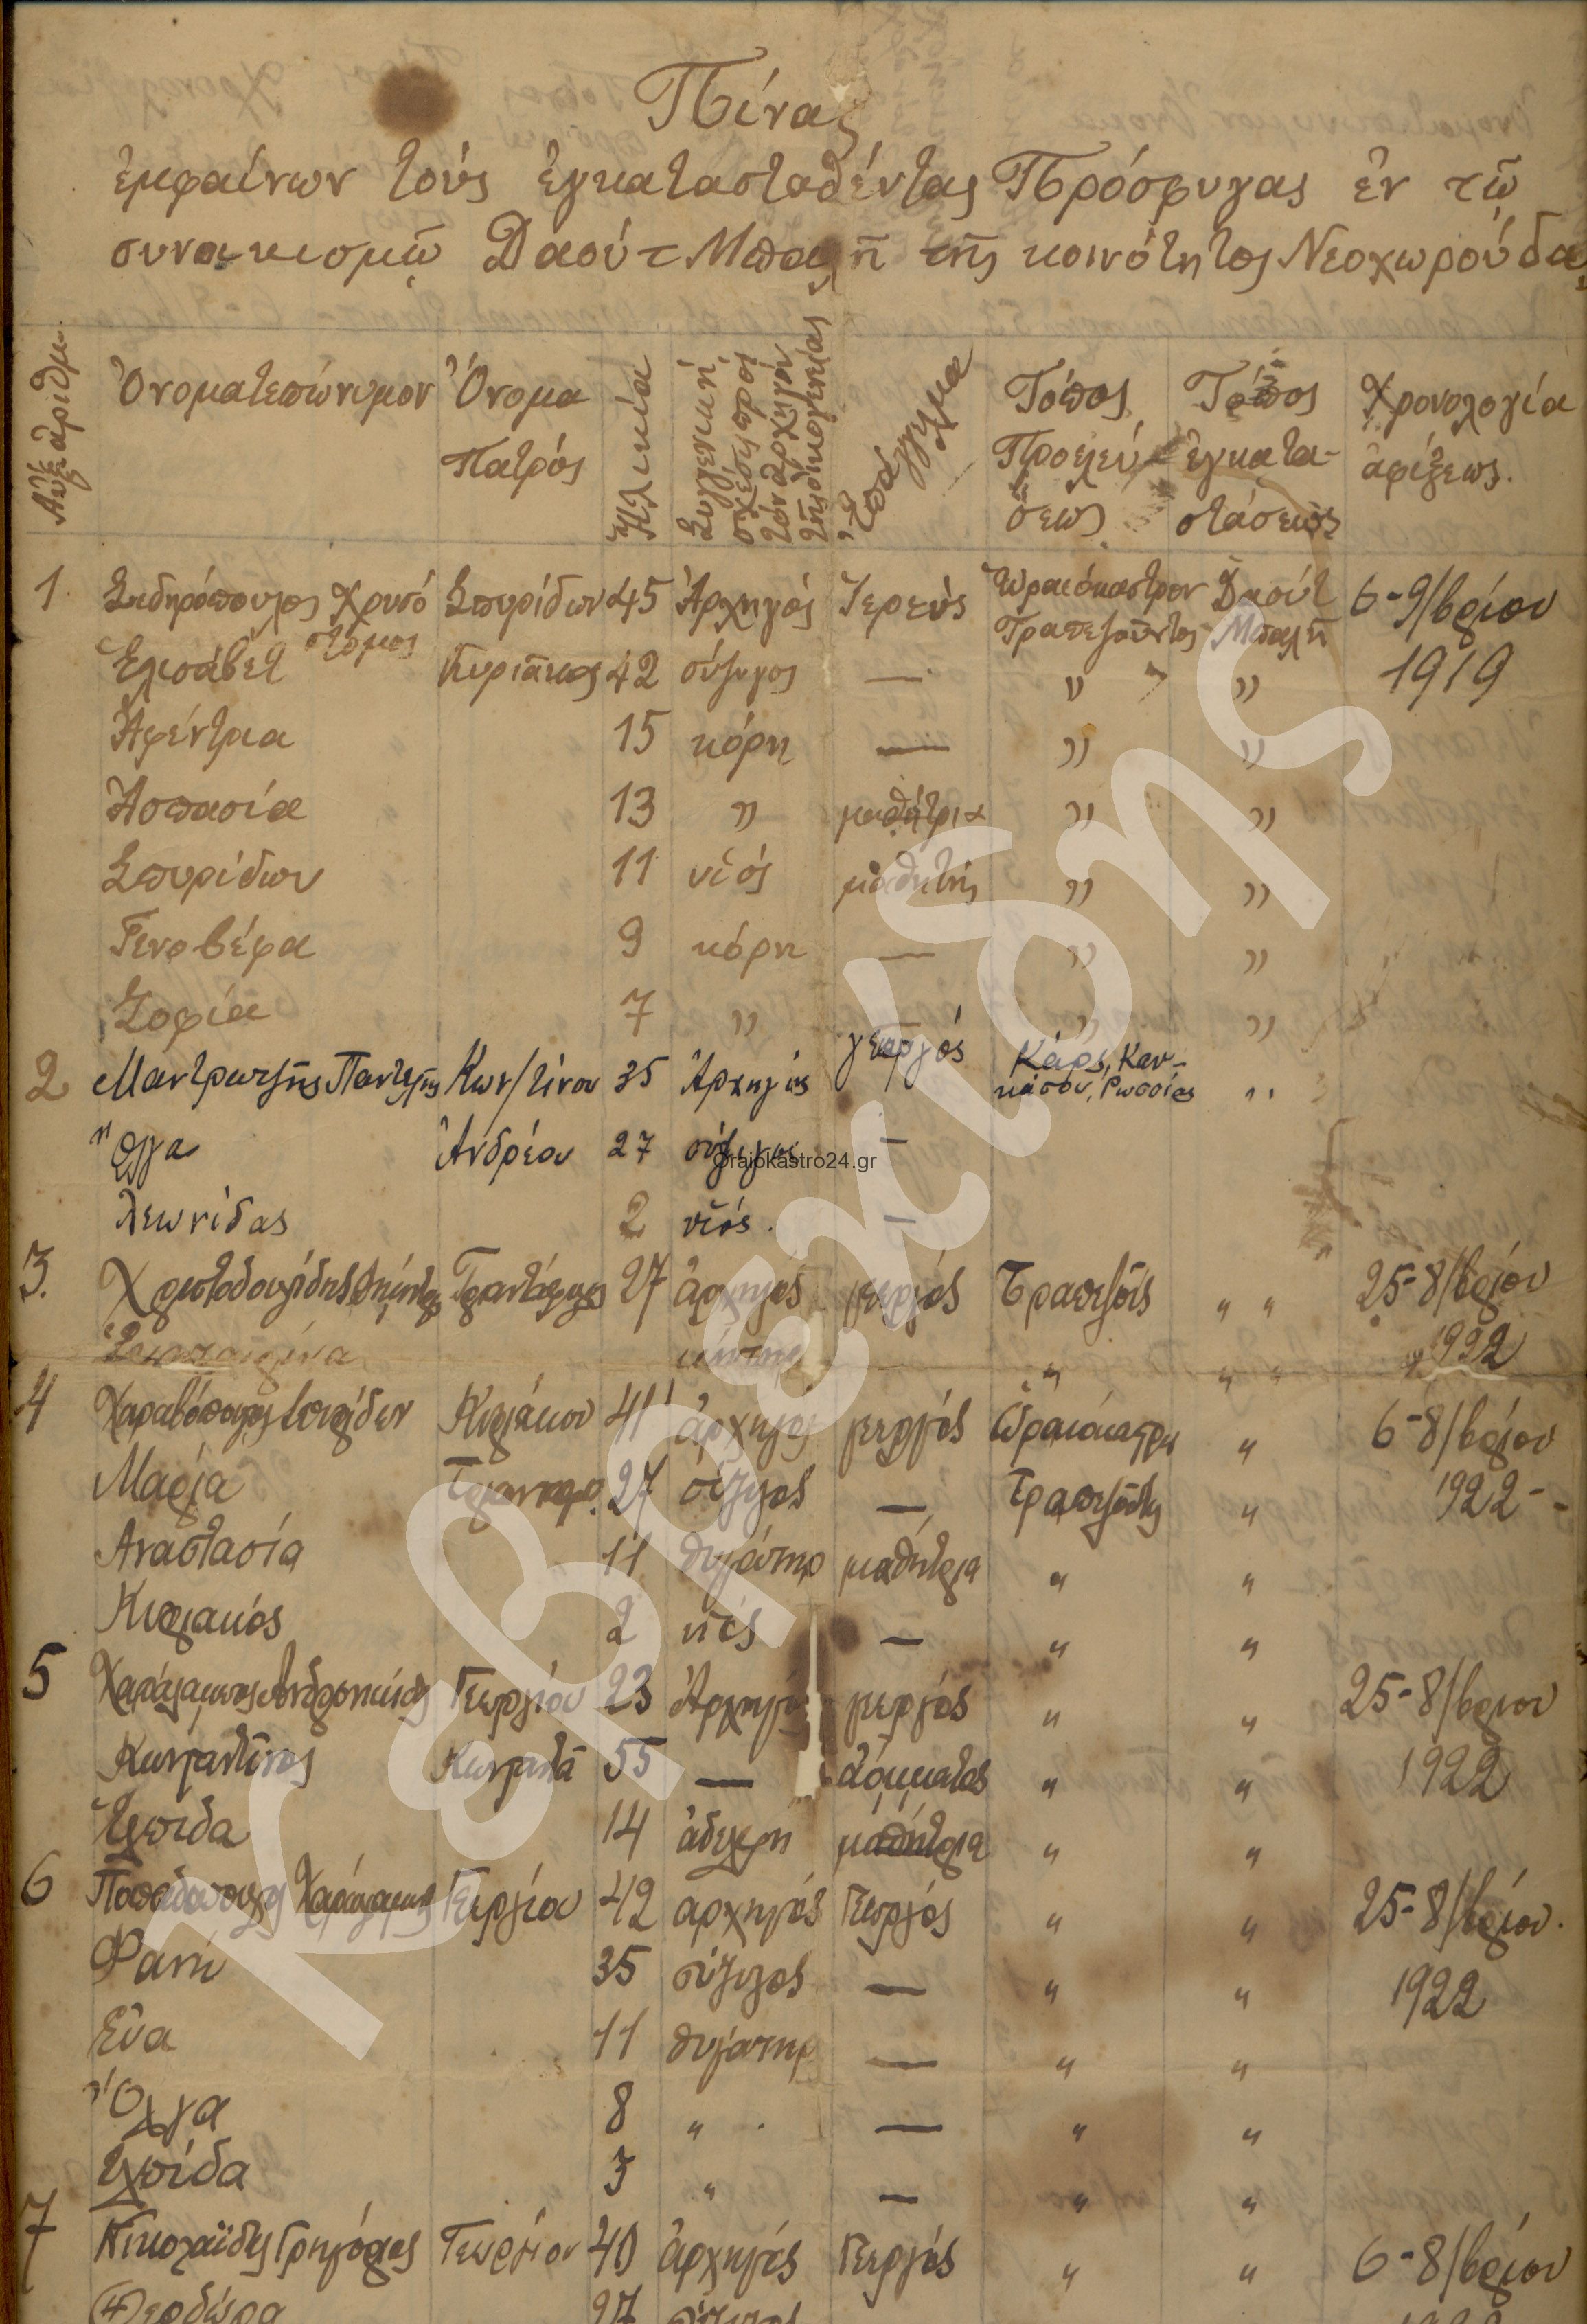 Πίναξ
ἐμφαίνων τούς ἐγκατασταθέντας Πρόσφυγας ἐν τῷ
συνοικισμῷ Δαούτ Μπαλῆ τῆς κοινότητος Νεοχωρούδας
Αὔξ. ἀριθμ. Ὀνοματεπώνυμον Ὄνομα Πατρός Ἡλικία Συγγενική σχέσις πρός τόν ἀρχηγόν τῆς οἰκογενείας Ἐπάγγελμα Τόπος Προελεύσεως Τόπος ἐγκαταστάσεως Χρονολογία ἀφίξεως.
1 Σιδηρόπουλος Χρυσόστομος Σπυρίδων 45 Ἀρχηγός Ἱερεύς Ὡραιόκαστρον Τραπεζοῦντος Δαούτ Μπαλῆ 6-9/βρίου
Ἐλισάβετ Κυριᾶκος 42 σύζυγος — " " 1919
Ἀφέντρια 15 κόρη — " "
Ἀσπασία 13 " μαθήτρια " "
Σπυρίδων 11 υἱός μαθητής " "
Γενοβέφα 9 κόρη — " "
Σοφία 7 " " "
2 Μαντρατζῆς Παντελῆς Κων/τίνου 35 Ἀρχηγός γεωργός Κάρς, Καυκάσου, Ρωσσίας "
Ὄλγα Ἀνδρέου 27 σύζυγος —
Λεωνίδας 2 υἱός. —
3. Χριστοδουλίδης Δημήτριος Τριαντάφυλλος 27 ἀρχηγός γεωργός Τραπεζοῦς " " 25-8/βρίου
" " " 1922
4 Χαραβόπουλος Σπυρίδων Κυριάκου 41 ἀρχηγός γεωργός Ὡραιόκαστρον " 6-8/βρίου
Μαρία 27 σύζυγος — Τραπεζοῦντος " 1922-
Αναστασία 11 θυγάτηρ μαθήτρια " "
Κυριακός 2 υἱός — " "
5 Χαράλαμπος Γεωργίου 23 Ἀρχηγός γεωργός " " 25-8/βριου
Κωνσταντῖνος Κωνσταντᾶ 55 — ἀόμματος " " 1922
Ἐλπιδα 14 ἀδελφή μαθήτρια " "
6 Παπαδόπουλος Χαράλαμπος Γεωργίου 42 αρχηγός Γεωργός " " 25-8/βρίου.
Φανή 35 σύζυγος — " " 1922
Εὔα 11 θυγάτηρ — " "
Ὄλγα 8 " — " "
Ἐλπίδα 3 " — " "
7 Νικολαΐδης Γρηγόριος Γεωργίου 40 ἀρχηγός Γεωργός " " 6-8/βρίου
Θεοδώρα 27 σύζυγος
Orajokastro24.gr